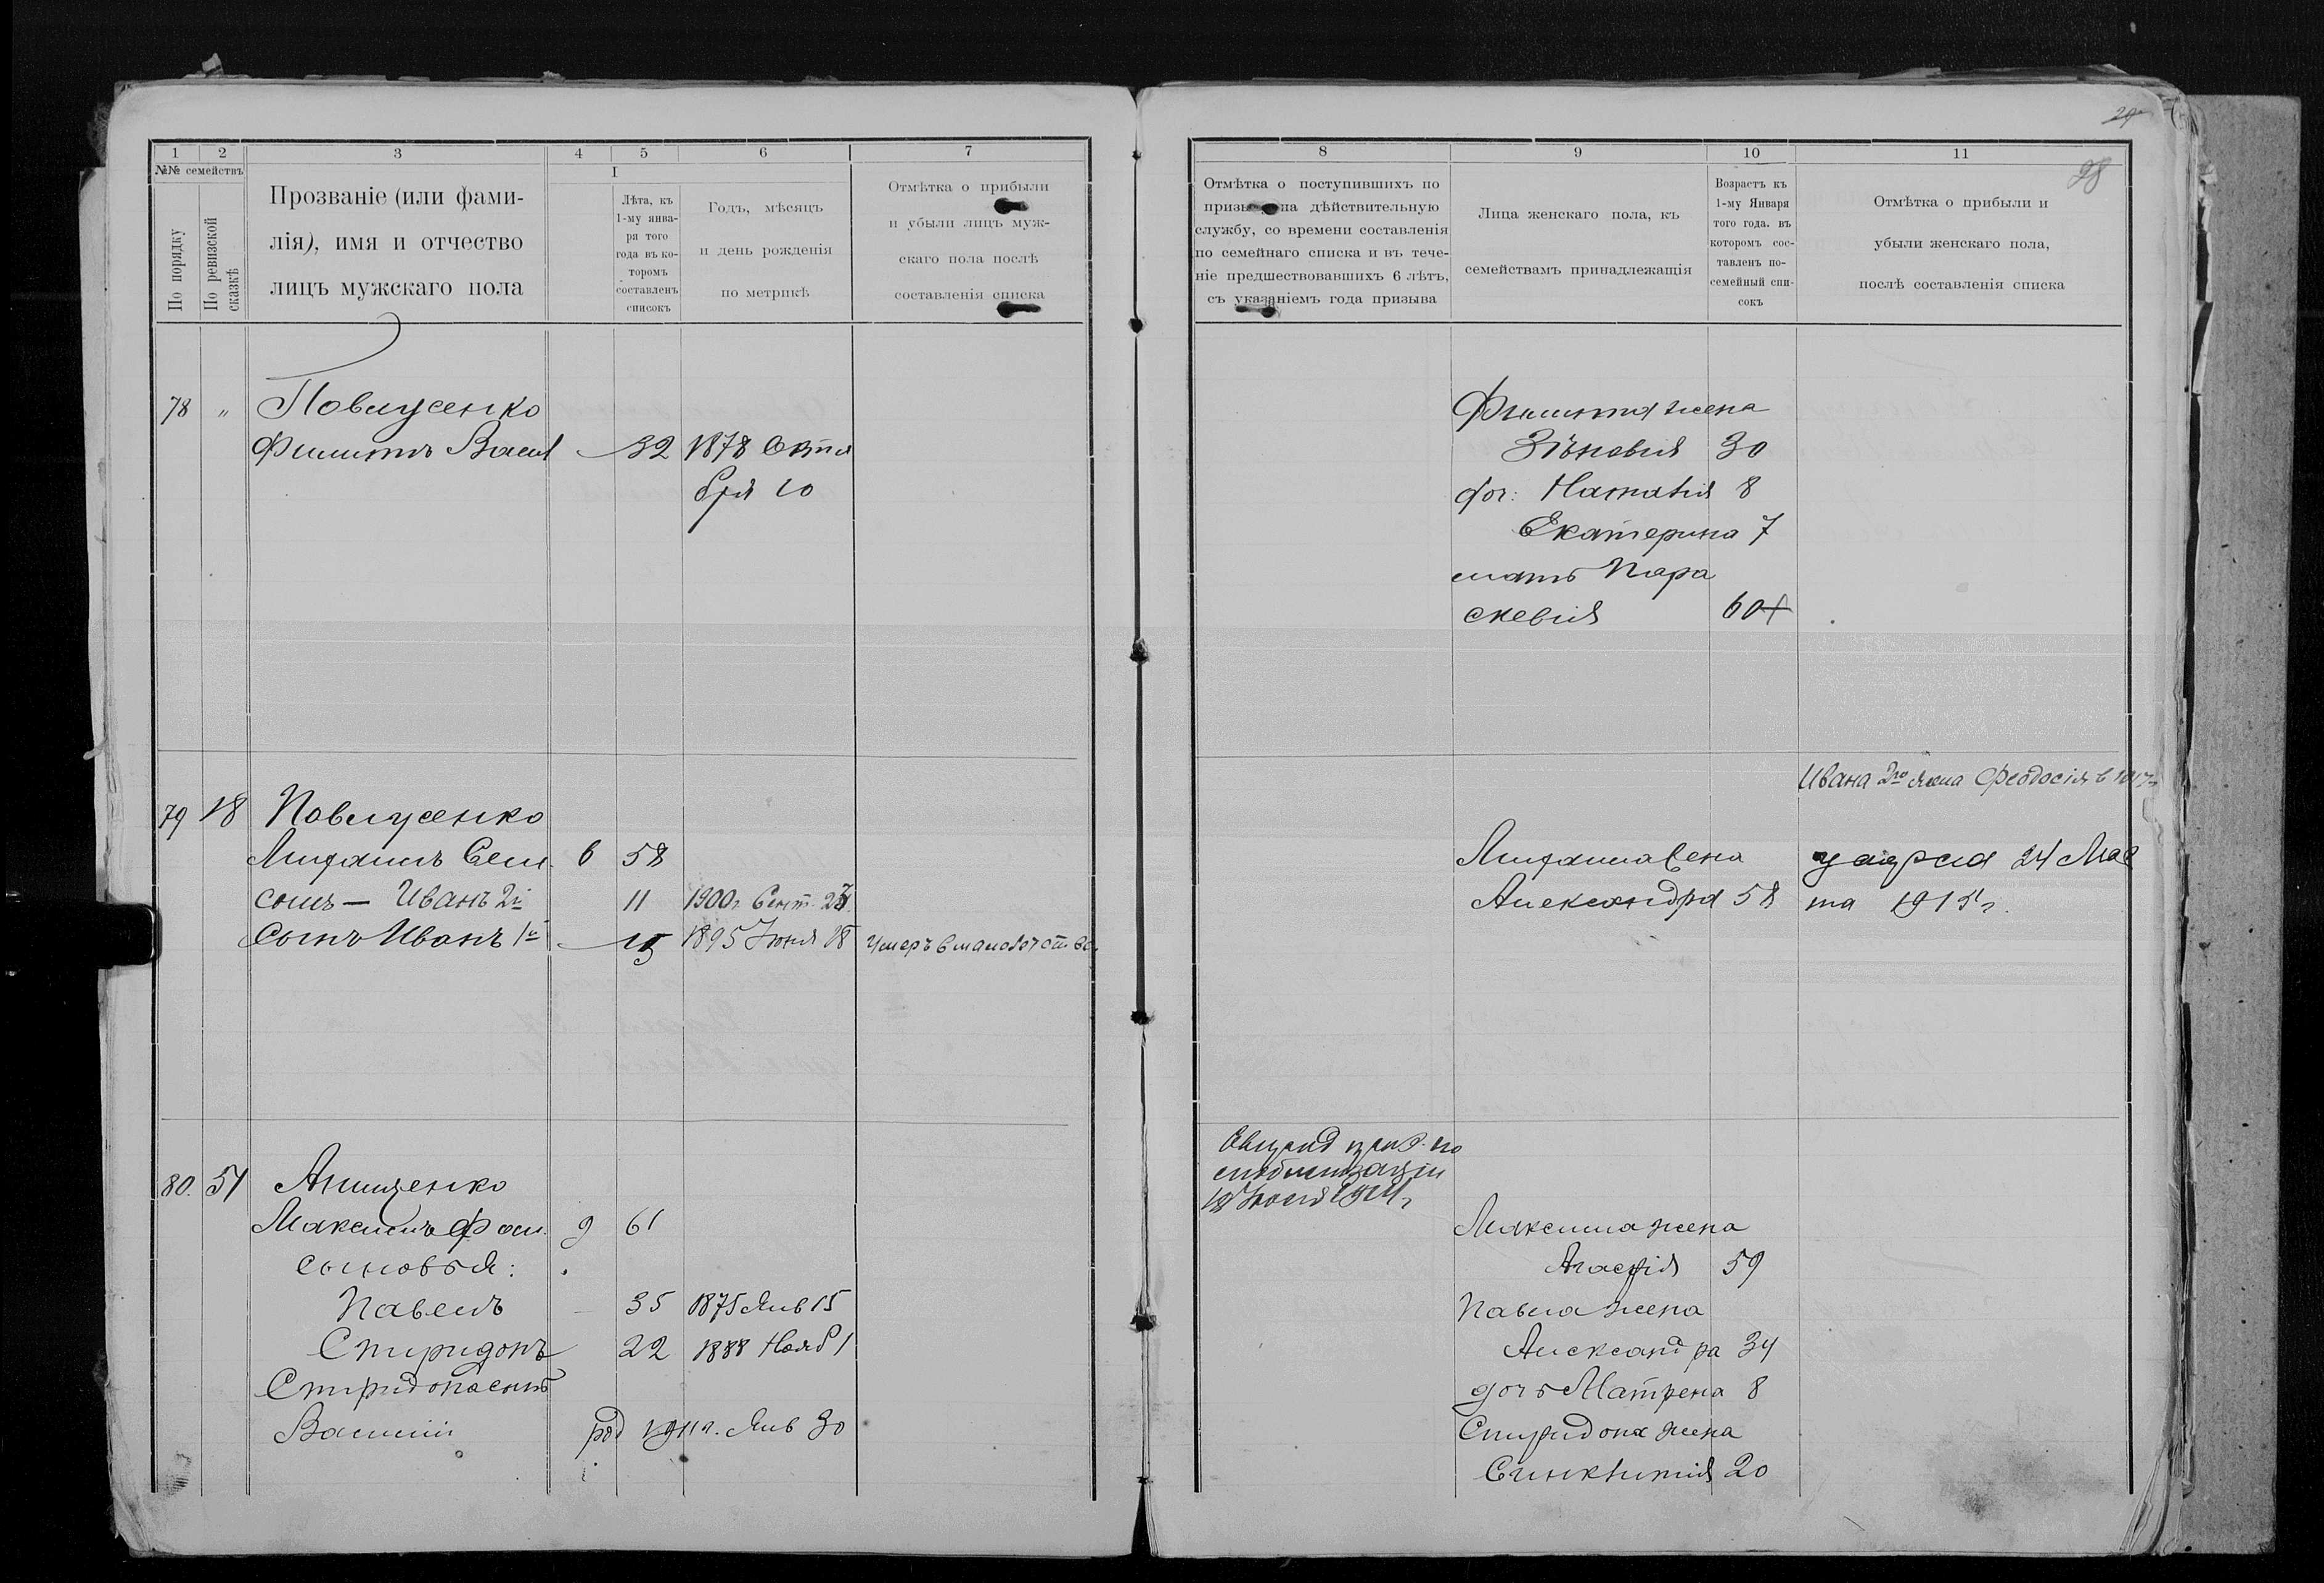 1 2 3 4 5 6 7
№№ семействъ
По порядку
По ревизской сказкѣ
Прозваніе (или фами-
лія), имя и отчество
лицъ мужскаго пола
I
Лѣта, къ
1-му янва-
ря того
года въ ко-
торомъ
составленъ
списокъ
Годъ, мѣсяцъ
и день рожденія
по метрикѣ
Отмѣтка о прибыли
и убыли лицъ муж-
скаго пола послѣ
составленія списка
78 "
Филиппъ Васил 32 1878 Октя
бря 10
79 18
6 58
сынъ — Иванъ 2й 11 1900г Сент. 27
Сынъ Иванъ 1й 15 1895 Іюня 28 Умеръ
80. 51 Анищенко
Максимъ Фом. 9 61
сыновья:
Павелъ 35 1875 Янв 15
Спиридонъ 22 1888 Нояб 1
Спиридона сынъ
Василій род 1911г. Янв 30
29
28
8 9 10 11
Отмѣтка о поступившихъ по
призыву на дѣйствительную
службу, со времени составленія
по семейнаго списка и въ тече-
ніе предшествовавшихъ 6 лѣтъ,
съ указаніемъ года призыва
Лица женскаго пола, къ
семействамъ принадлежащія
Возрастъ къ
1-му Января
того года. въ
которомъ сос-
тавленъ по-
семейный спи-
сокъ
Отмѣтка о прибыли и
убыли женскаго пола,
послѣ составленія списка
Филиппа жена
Зѣновія 30
доч: Наталія 8
Екатерина 7
мать Пара
скевія 60
Ивана 2го жена Феодосія в
жена
Александра 58
24 Мар
та 1915г.
по
мобилизаціи
18 Іюля 1914г
Максима жена
Агафія 59
Павла жена
Александра 34
дочь Матрена 8
Спиридона жена
Синклитія 20